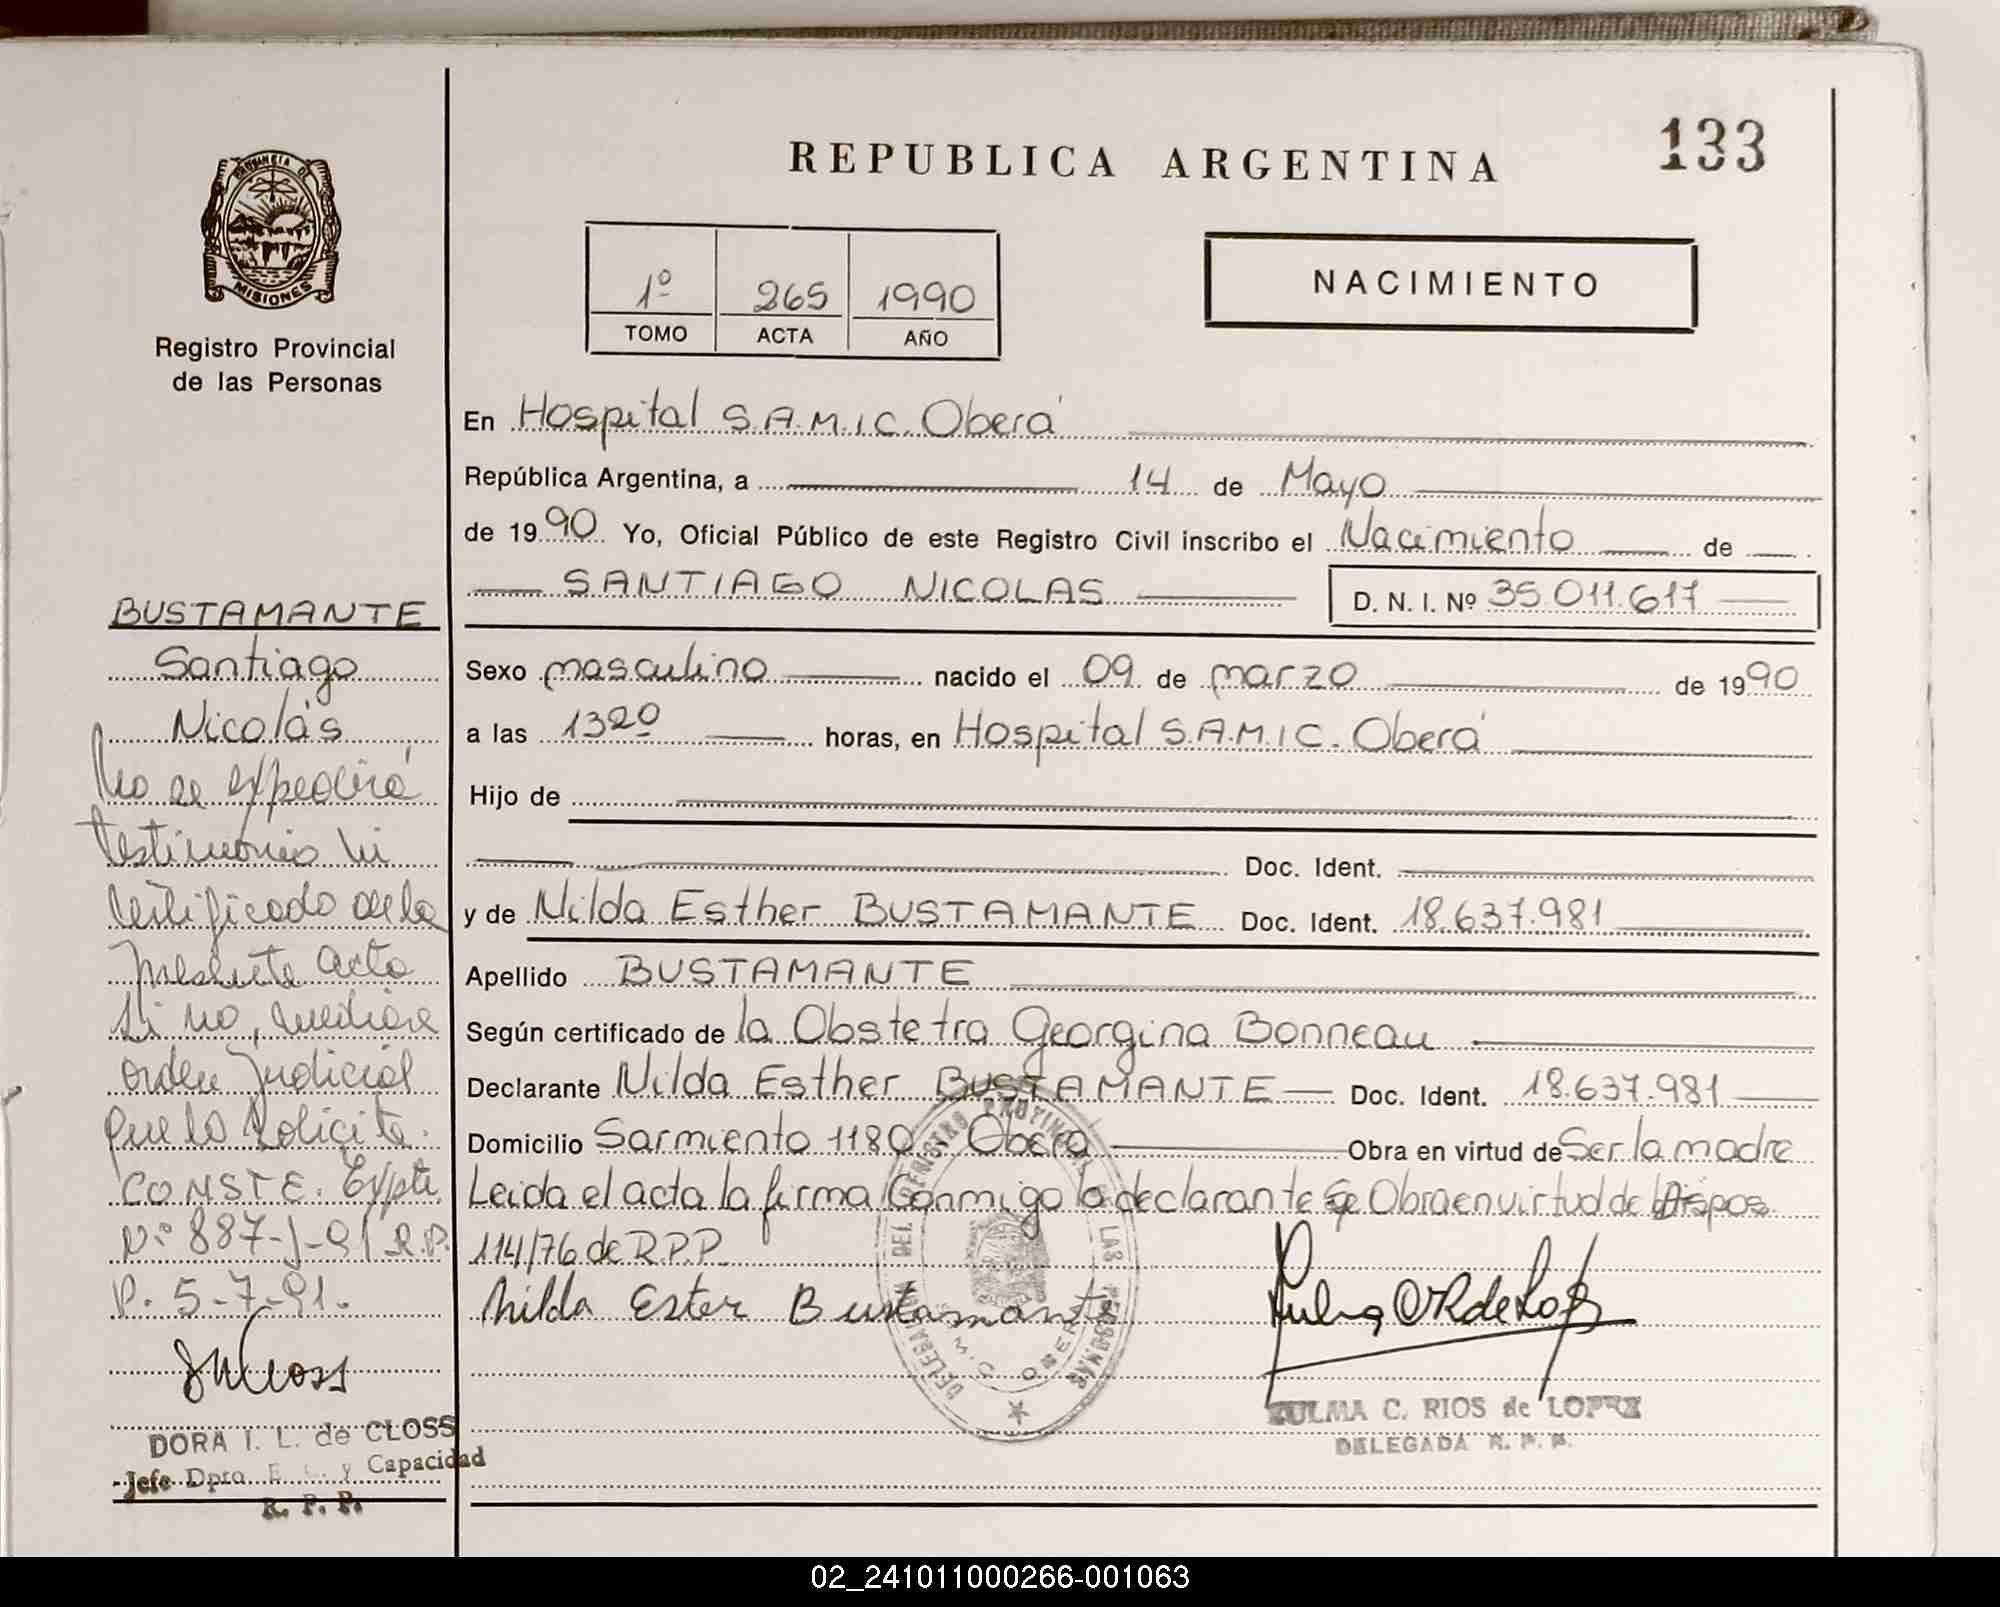 REPUBLICA ARGENTINA
133
PROVINCIA DE
MISIONES
Registro Provincial
de las Personas
1º 265 1990
TOMO ACTA AÑO
NACIMIENTO
En Hospital S.A.M.I.C. Oberá
República Argentina, a 14 de Mayo
de 1990 Yo, Oficial Público de este Registro Civil inscribo el Nacimiento de
SANTIAGO NICOLAS D. N. I. Nº 35.011.617
Sexo masculino nacido el 09 de marzo de 1990
a las 13 20 horas, en Hospital S.A.M.I.C. Oberá
Hijo de
Doc. Ident.
y de Nilda Esther BUSTAMANTE Doc. Ident. 18.637.981
Apellido BUSTAMANTE
Según certificado de la Obstetra Georgina Bonneau
Declarante Nilda Esther BUSTAMANTE Doc. Ident. 18.637.981
Domicilio Sarmiento 1180 Oberá Obra en virtud de Ser la madre
Leida el acta la firma Conmigo la declarante Se Obra en virtud de Dispos
114/76 de R.P.P.
Nilda Ester Bustamante
ZULMA C. RIOS de LOPEZ
DELEGADA R. P. P.
DELEGACION DEL REGISTRO PROVINCIAL DE LAS PERSONAS
OBERA
BUSTAMANTE
Santiago
Nicolás
No se expedirá
testimonio ni
certificado de la
presente acta
si no, mediare
orden judicial
que lo solicite.
CONSTE. Expte
Nº 887-J-91 R.P.
P. 5-7-91.
DORA I. L. de CLOSS
Jefe Dpto E. C. y Capacidad
R. P. P.
02_241011000266-001063